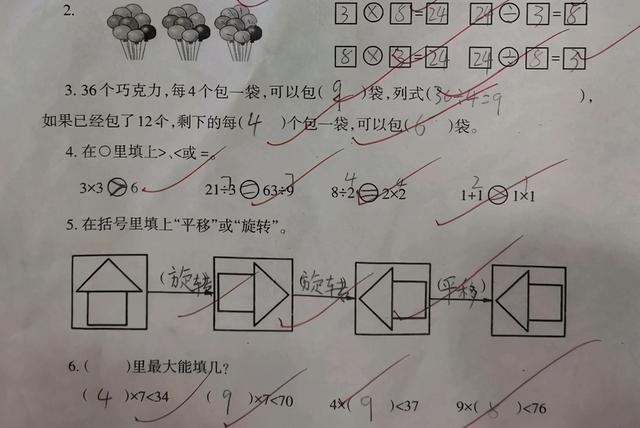 2.
3 × 8 = 24 24 ÷ 3 = 8
8 × 3 = 24 24 ÷ 8 = 3
3. 36个巧克力,每4个包一袋,可以包( 9 )袋,列式( 36÷4=9 ),
如果已经包了12个,剩下的每( 4 )个包一袋,可以包( 6 )袋。
4. 在○里填上>、<或=。
3×3 > 6 21÷3 = 63÷9 8÷2 = 2×2 1+1 > 1×1
7 7 4 4 2 1
5. 在括号里填上“平移”或“旋转”。
(旋转) 旋转 (平移)
6. ( )里最大能填几?
( 4 )×7<34 ( 9 )×7<70 4×( 9 )<37 9×( 8 )<76